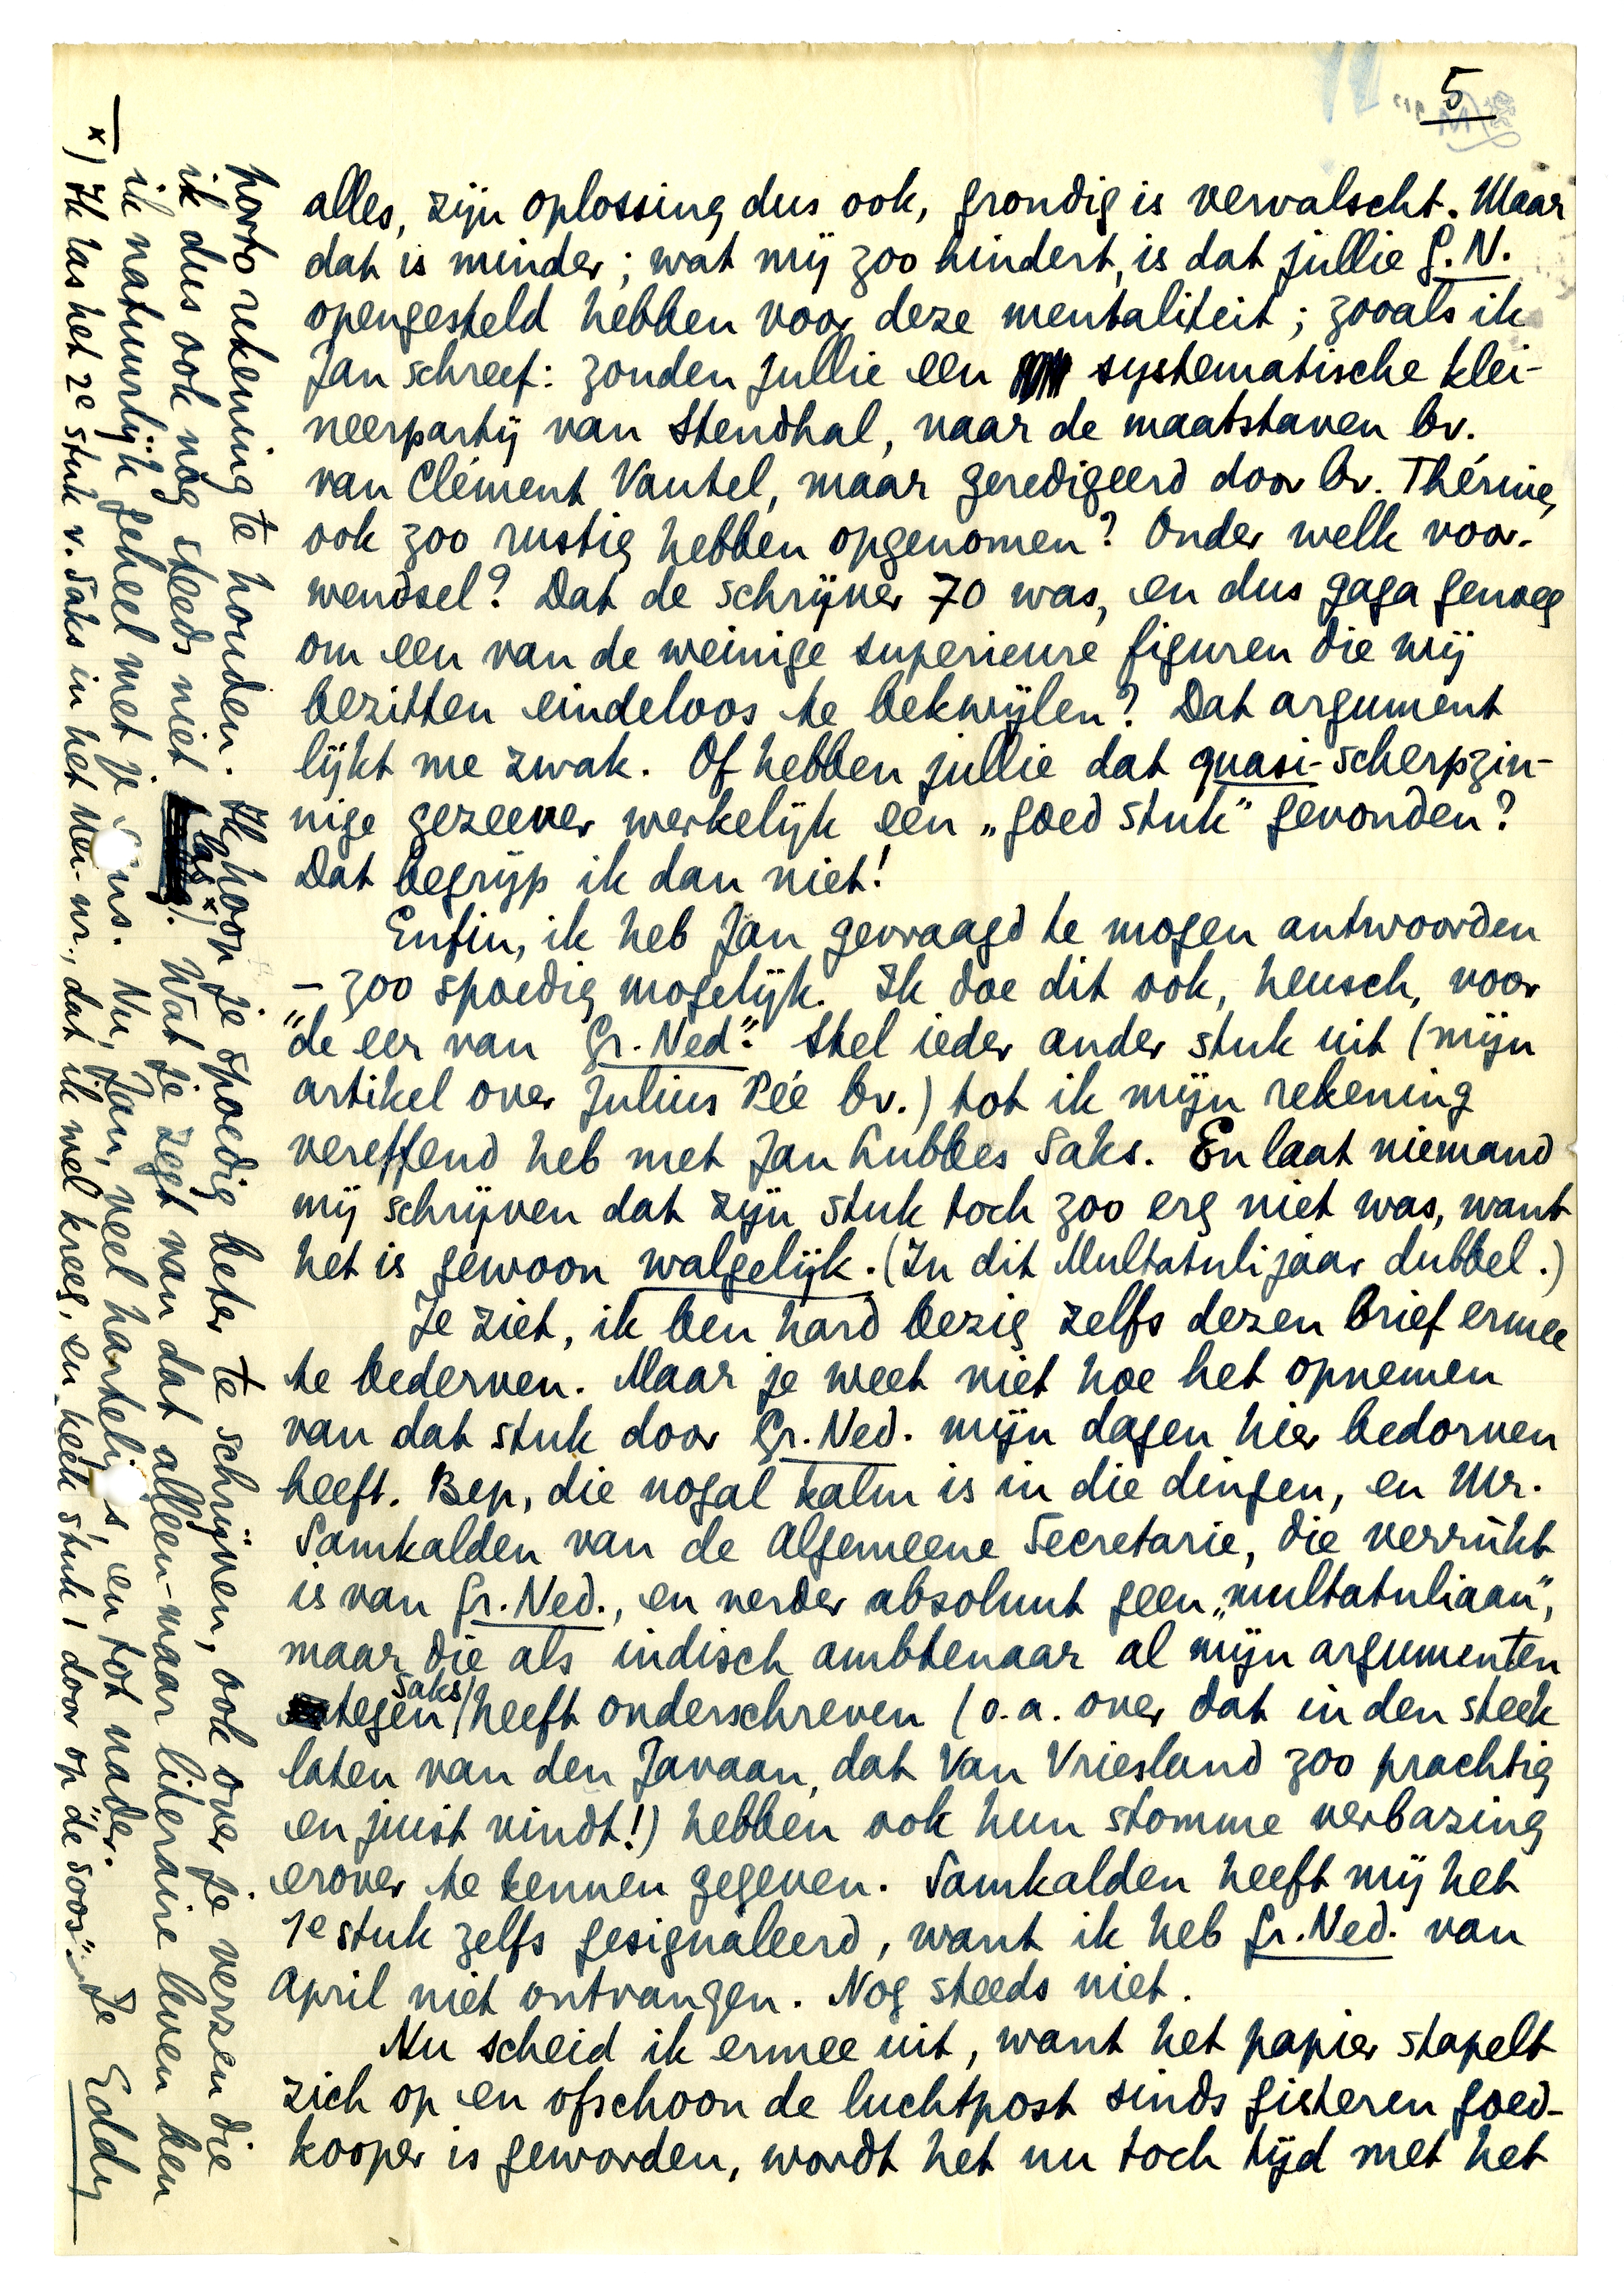 5
alles, zijn oplossing dus ook, grondig is vervalscht. Maar
dat is minder; wat mij zoo hindert, is dat jullie G.N.
opengesteld hebben voor deze mentaliteit; zooals ik
Jan schreef: zouden jullie een systematische klei-
neerpartij van Stendhal, naar de maatstaven bv.
van Clément Vautel, maar geredigeerd door bv. Thérive,
ook zoo rustig hebben opgenomen? Onder welk voor-
wendsel? Dat de schrijver 70 was, en dus gaga genoeg
om een van de weinige superieure figuren die wij
bezitten eindeloos te bekwijlen? Dat argument
lijkt me zwak. Of hebben jullie dat quasi-scherpzin-
nige gezeever werkelijk een „goed stuk" gevonden?
Dat begrijp ik dan niet!
Enfin, ik heb Jan gevraagd te mogen antwoorden
– zoo spoedig mogelijk. Ik doe dit ook, heusch, voor
"de eer van Gr. Ned". Stel ieder ander stuk uit (mijn
artikel over Julius Pée bv.) tot ik mijn rekening
vereffend heb met Jan Lubbes Saks. En laat niemand
mij schrijven dat zijn stuk toch zoo erg niet was, want
het is gewoon walgelijk. (In dit Multatulijaar dubbel.)
Je ziet, ik ben hard bezig zelfs dezen brief ermee
te bederven. Maar je weet niet hoe het opnemen
van dat stuk door Gr. Ned. mijn dagen hier bedorven
heeft. Bep, die nogal kalm is in die dingen, en Mr.
Samkalden van de Algemeene Secretarie, die verrukt
is van Gr. Ned., en verder absoluut geen „multatuliaan",
maar die als indisch ambtenaar al mijn argumenten
tegen Saks heeft onderschreven (o.a. over dat in den steek
laten van den Javaan, dat Van Vriesland zoo prachtig
en juist vindt!) hebben ook hun stomme verbazing
erover te kennen gegeven. Samkalden heeft mij het
1e stuk zelfs gesignaleerd, want ik heb Gr. Ned. van
April niet ontvangen. Nog steeds niet.
Nu scheid ik ermee uit, want het papier stapelt
zich op en ofschoon de luchtpost sinds gisteren goed-
kooper is geworden, wordt het nu toch tijd met het
porto rekening te houden. Ik hoop je spoedig beter te schrijven, ook over je verzen die
ik dus ook nog steeds niet las x). Wat je zegt van dat alleen-maar literaire leven ben
ik natuurlijk geheel met je eens. Nu, Jan, veel hartelijks, en tot nader.
Je Eddy
x) Ik las het 2e stuk v. Saks in het Mei-nr., dat ik wel kreeg, en keek 't stuk 1 door op "de soos".